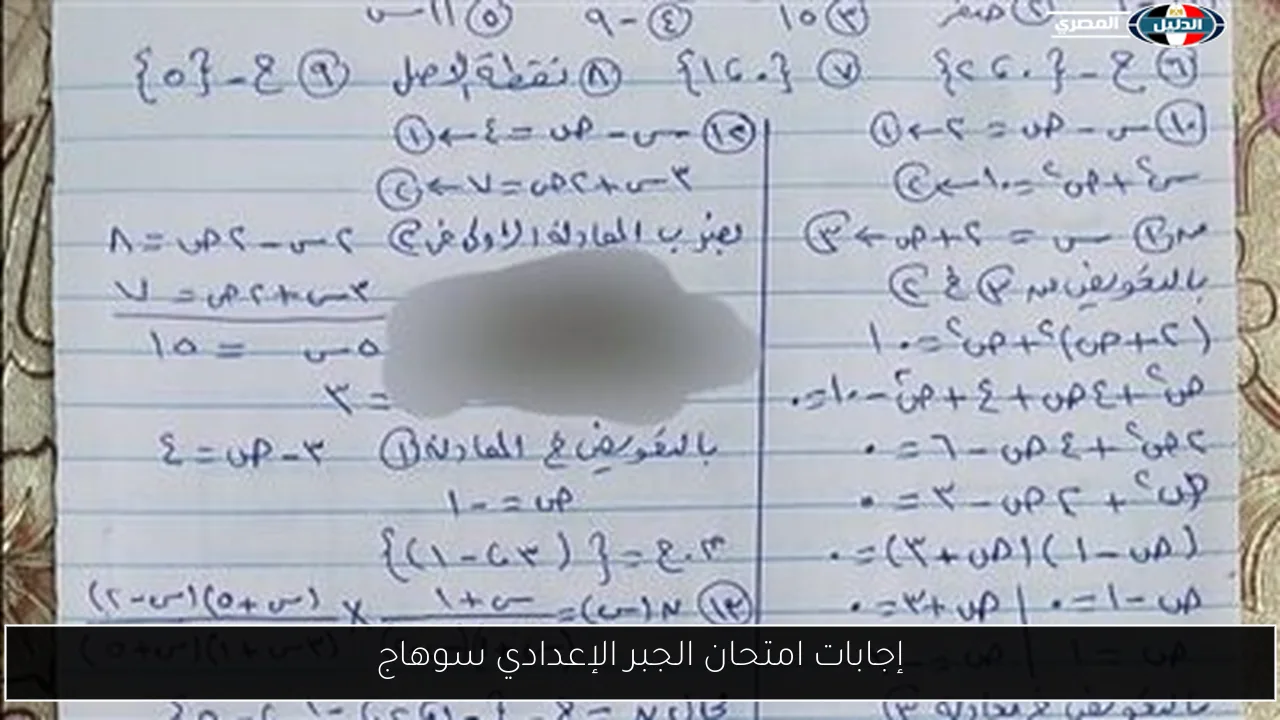 الدليل المصري
② صفر ③ ١٥ ④ -٩ ⑤ ١١س
⑥ ح - {٠، ٢} ⑦ {٠، ١} ⑧ نقطة الأصل ⑨ ح - {٥}
⑩ س - ص = ٢ ← ①
س² + ص² = ١٠ ← ②
من ① س = ٢ + ص ← ③
بالتعويض من ③ في ②
(٢ + ص)² + ص² = ١٠
ص² + ٤ص + ٤ + ص² - ١٠ = ٠
٢ص² + ٤ص - ٦ = ٠
ص² + ٢ص - ٣ = ٠
(ص - ١)(ص + ٣) = ٠
ص - ١ = ٠ | ص + ٣ = ٠
ص = ١ | ص =
بالتعويض في معادلة ③
⑫ س - ص = ٤ ← ①
٣س + ٢ص = ٧ ← ②
بضرب المعادلة الأولى في ②
٢س - ٢ص = ٨
٣س + ٢ص = ٧
٥س = ١٥
= ٣
بالتعويض في المعادلة ① ٣ - ص = ٤
ص = -١
م.ح = {(٣، -١)}
⑬ ن(س) = س + ١ × (س + ٥)(س - ٢)
(٣س + ١)(س + ٥)
مجال ن = ح -
إجابات امتحان الجبر الإعدادي سوهاج